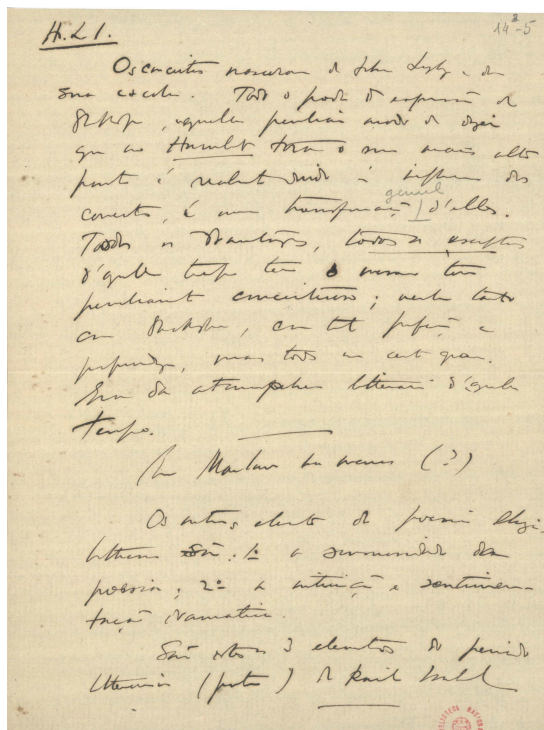 H. L. I.
14²-5
Os conceitos nasceram de John Lyly e da
sua escola. Todo o poder de expressão de
Shakespeare, aquella peculiar modo de dizer
que no Hamlet toma o seu mais alto
ponto é realmente devido á influencia dos
conceitos, é uma transformação genial d'elles.
Todos os dramaturgos, todos os
d'aquelle tempo têm o mesmo tom
peculiarmente conceituoso; nem tanto
com Shakespeare, com tal perfeição e
mas todos em certo grau.
Era da atmosphera litteraria d'aquelle
tempo.
Em Marlowe ha menos (?)
Os outros elementos da poesia
são: 1º a sonoridade da
poesia; 2º a intuição e
dramatica.
São estes os 3 elementos do periodo
litterario (poetico) de